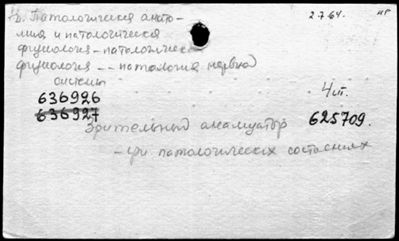 Патологическая анато-
мия и патологическая
физиология - патологическая
физиология - - патология нервной
системы
2.7.64.
636926
4 шт.
636927
625709.
Зрительный анализатор
- при патологических состояниях